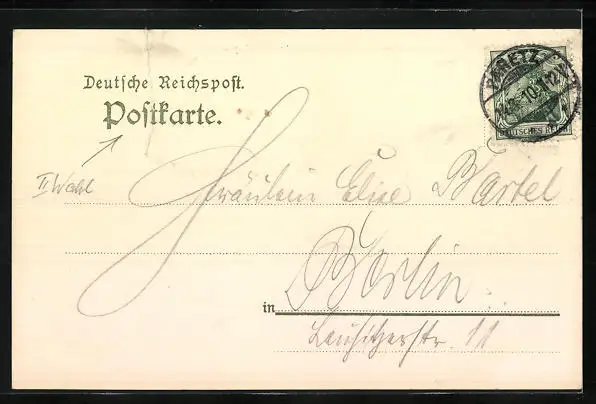 Deutsche Reichspost.
Postkarte.
II Wahl
Fräulein Elise Bartel
in Berlin
Lausitzerstr. 11
DEUTSCHES REICH